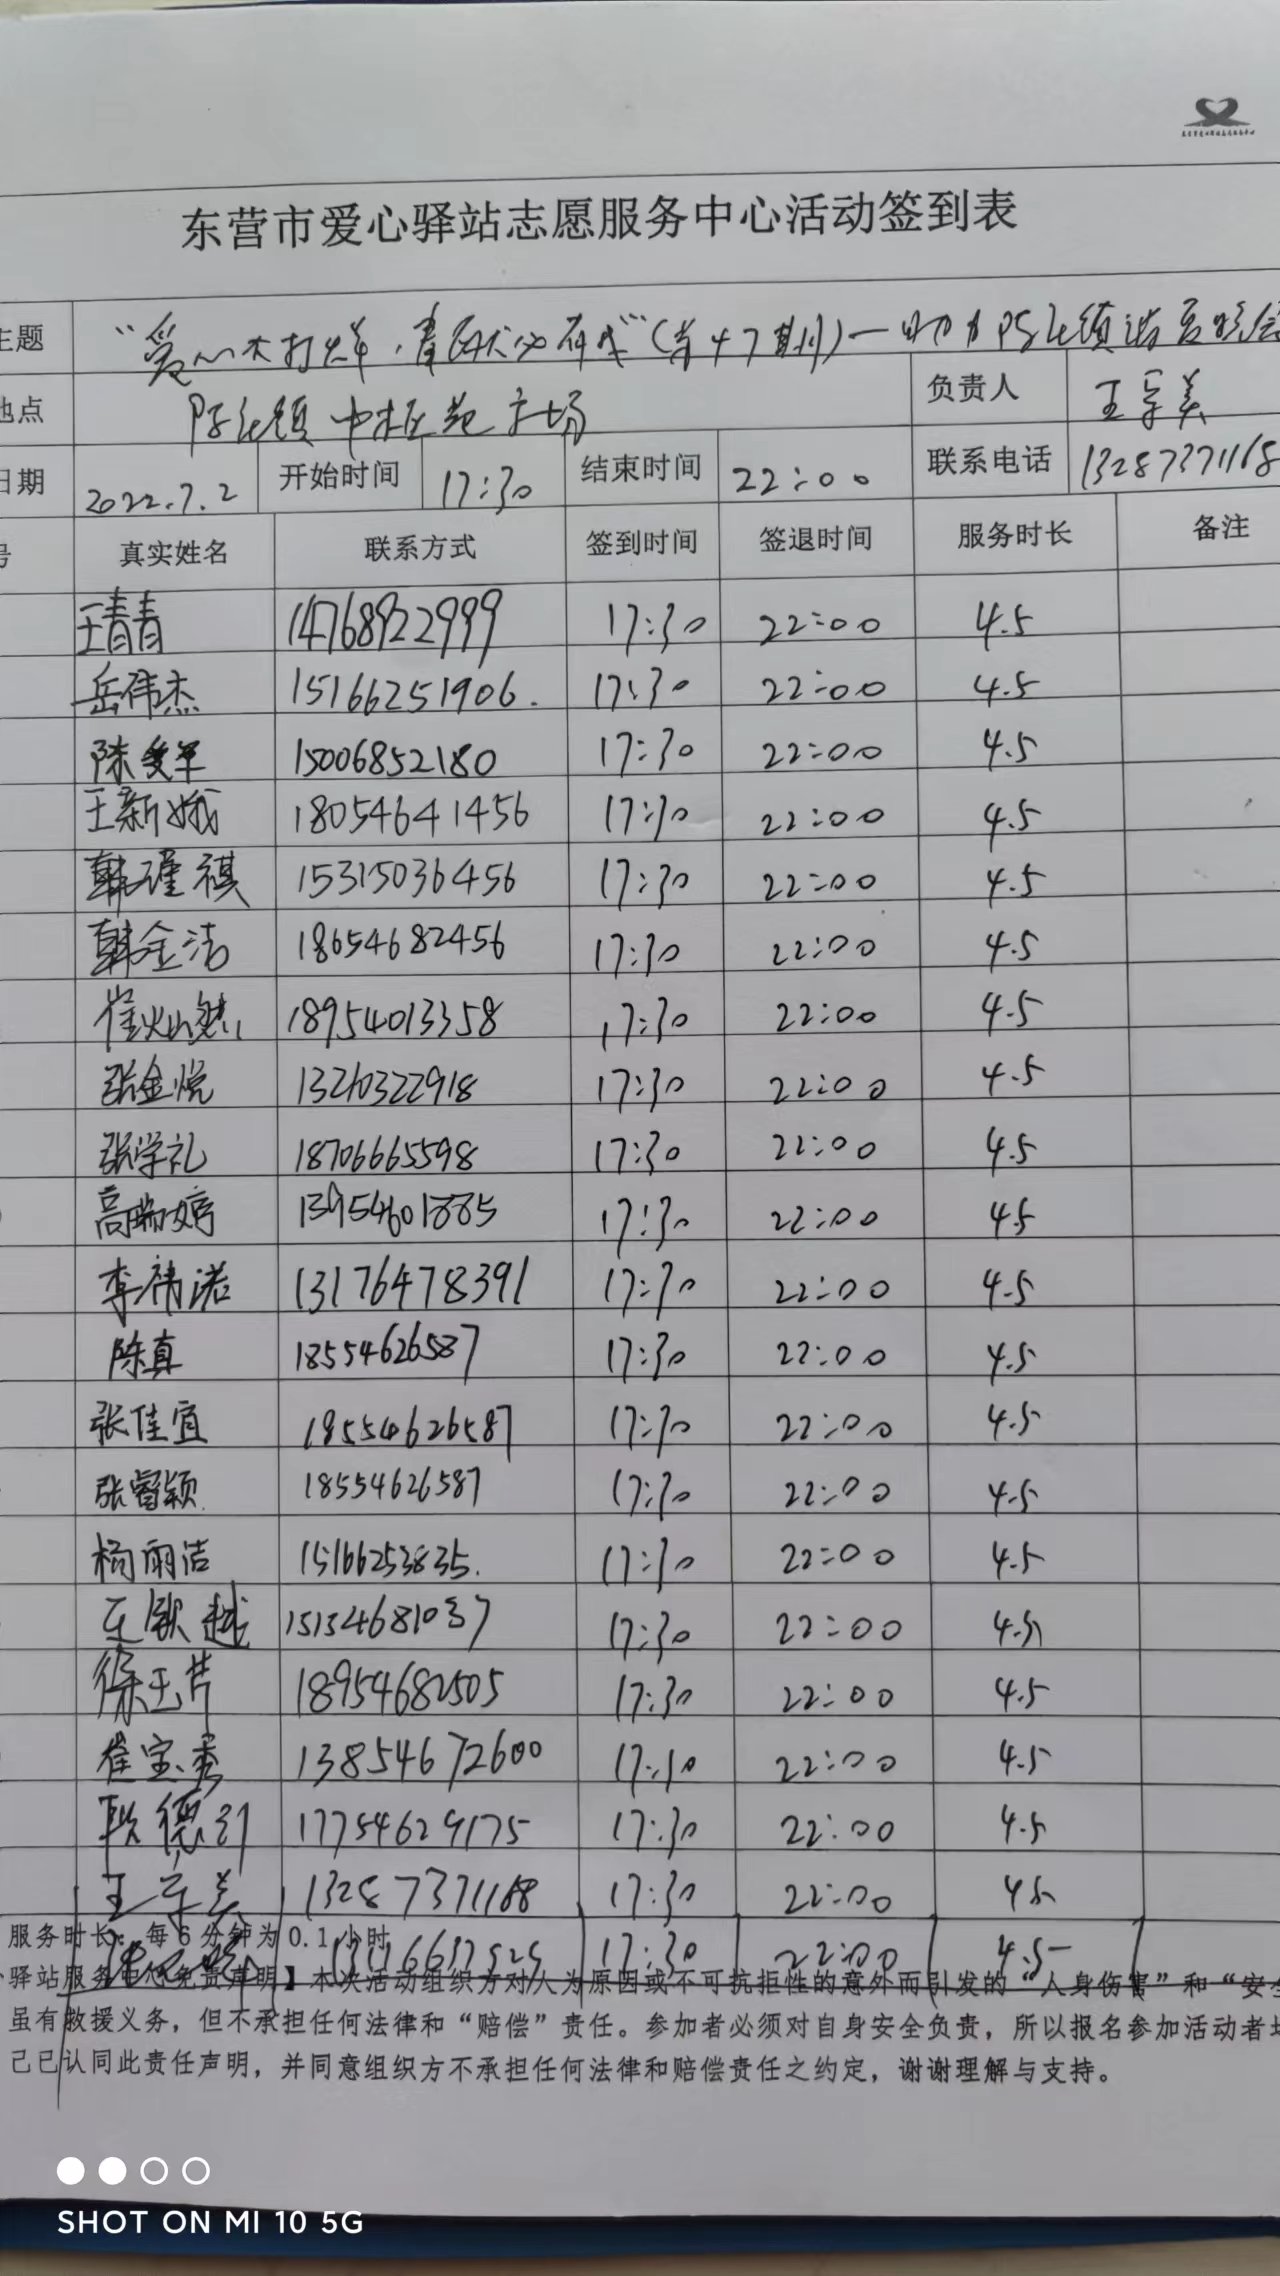 东营市爱心驿站志愿服务中心活动签到表
主题 "爱心不打烊,青 必有我"(第47期)—助力陈庄镇消夏晚会
地点 陈庄镇中 苑广场 负责人 王学美
日期 2022.7.2 开始时间 17:30 结束时间 22:00 联系电话 13287371168
号 真实姓名 联系方式 签到时间 签退时间 服务时长 备注
王青青 14768922999 17:30 22:00 4.5
岳伟杰 15166251906. 17:30 22:00 4.5
陈爱军 15006852180 17:30 22:00 4.5
王新娥 18054641456 17:30 22:00 4.5
韩瑾祺 15315036456 17:30 22:00 4.5
韩金洁 18654682456 17:30 22:00 4.5
崔灿然 18954013358 17:30 22:00 4.5
张金悦 13210322918 17:30 22:00 4.5
张学礼 18706665598 17:30 22:00 4.5
高瑞婷 13954601885 17:30 22:00 4.5
李祎诺 13176478391 17:30 22:00 4.5
陈真 18554626587 17:30 22:00 4.5
张佳宜 18554626587 17:30 22:00 4.5
张睿颖 18554626587 17:30 22:00 4.5
杨雨洁 15166253835. 17:30 22:00 4.5
王歆越 15154681037 17:30 22:00 4.5
徐玉芹 18954682505 17:30 22:00 4.5
崔宝秀 13854672600 17:30 22:00 4.5
耿德 17754629175 17:30 22:00 4.5
王学美 13287371168 17:30 22:00 4.5
17:30 22:00 4.5
服务时长:每6分钟为0.1小时
驿站服务中心免责声明】本次活动组织方对人为原因或不可抗拒性的意外而引发的“人身伤害”和“安全
虽有救援义务,但不承担任何法律和“赔偿”责任。参加者必须对自身安全负责,所以报名参加活动者均
己已认同此责任声明,并同意组织方不承担任何法律和赔偿责任之约定,谢谢理解与支持。
SHOT ON MI 10 5G